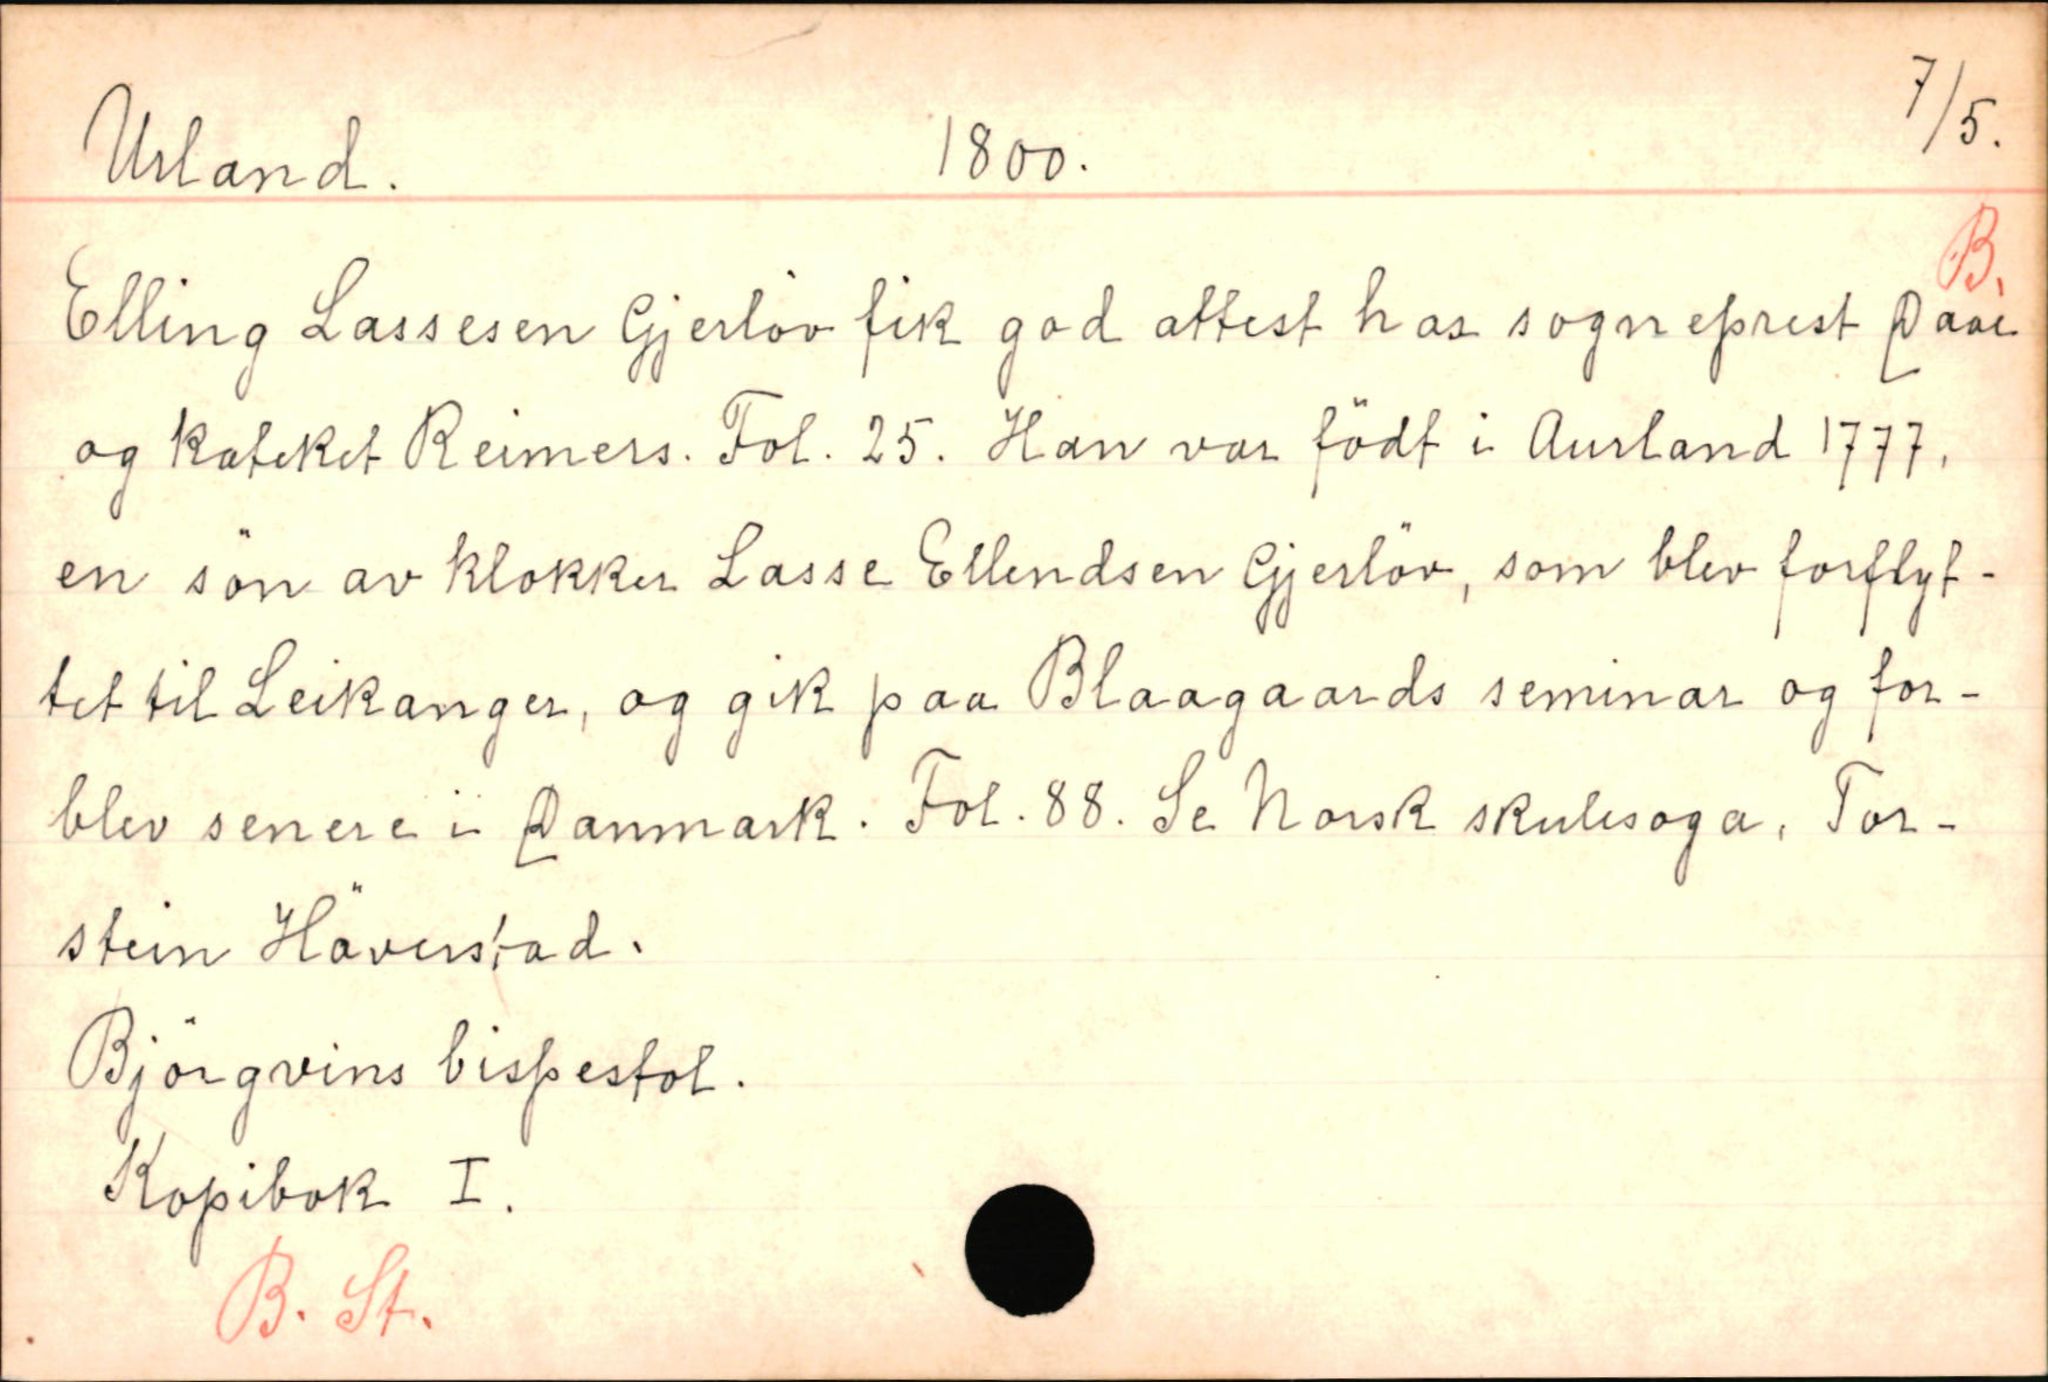 Urland. 1800. 7/5.
B.
Elling Lassesen Gjerlöv fik god attest hos sogneprest Daae
og kateket Reimers. Fol. 25. Han var födt i Aurland 1777,
en sön av klokker Lasse Ellendsen Gjerlöv, som blev forflyt-
tet til Leikanger, og gik paa Blaagaards seminar og for-
blev senere i Danmark. Fol. 88. Se Norsk skulesoga, Tor-
stein Höverstad.
Björgvins bispestol.
Kopibok I.
B. St.